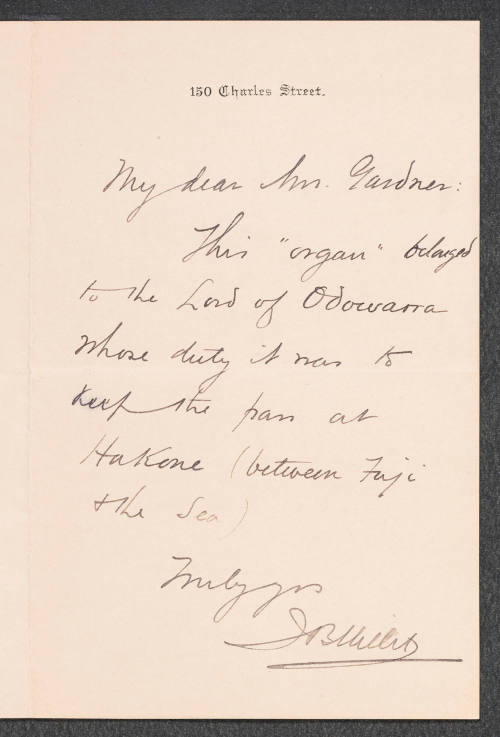 150 Charles Street.
My dear Mrs. Gardner:
This "organ" belonged
to the Lord of Odowarra
whose duty it was to
keep the pass at
Hakone (between Fuji
& the Sea)
Truly yrs
J B Millet